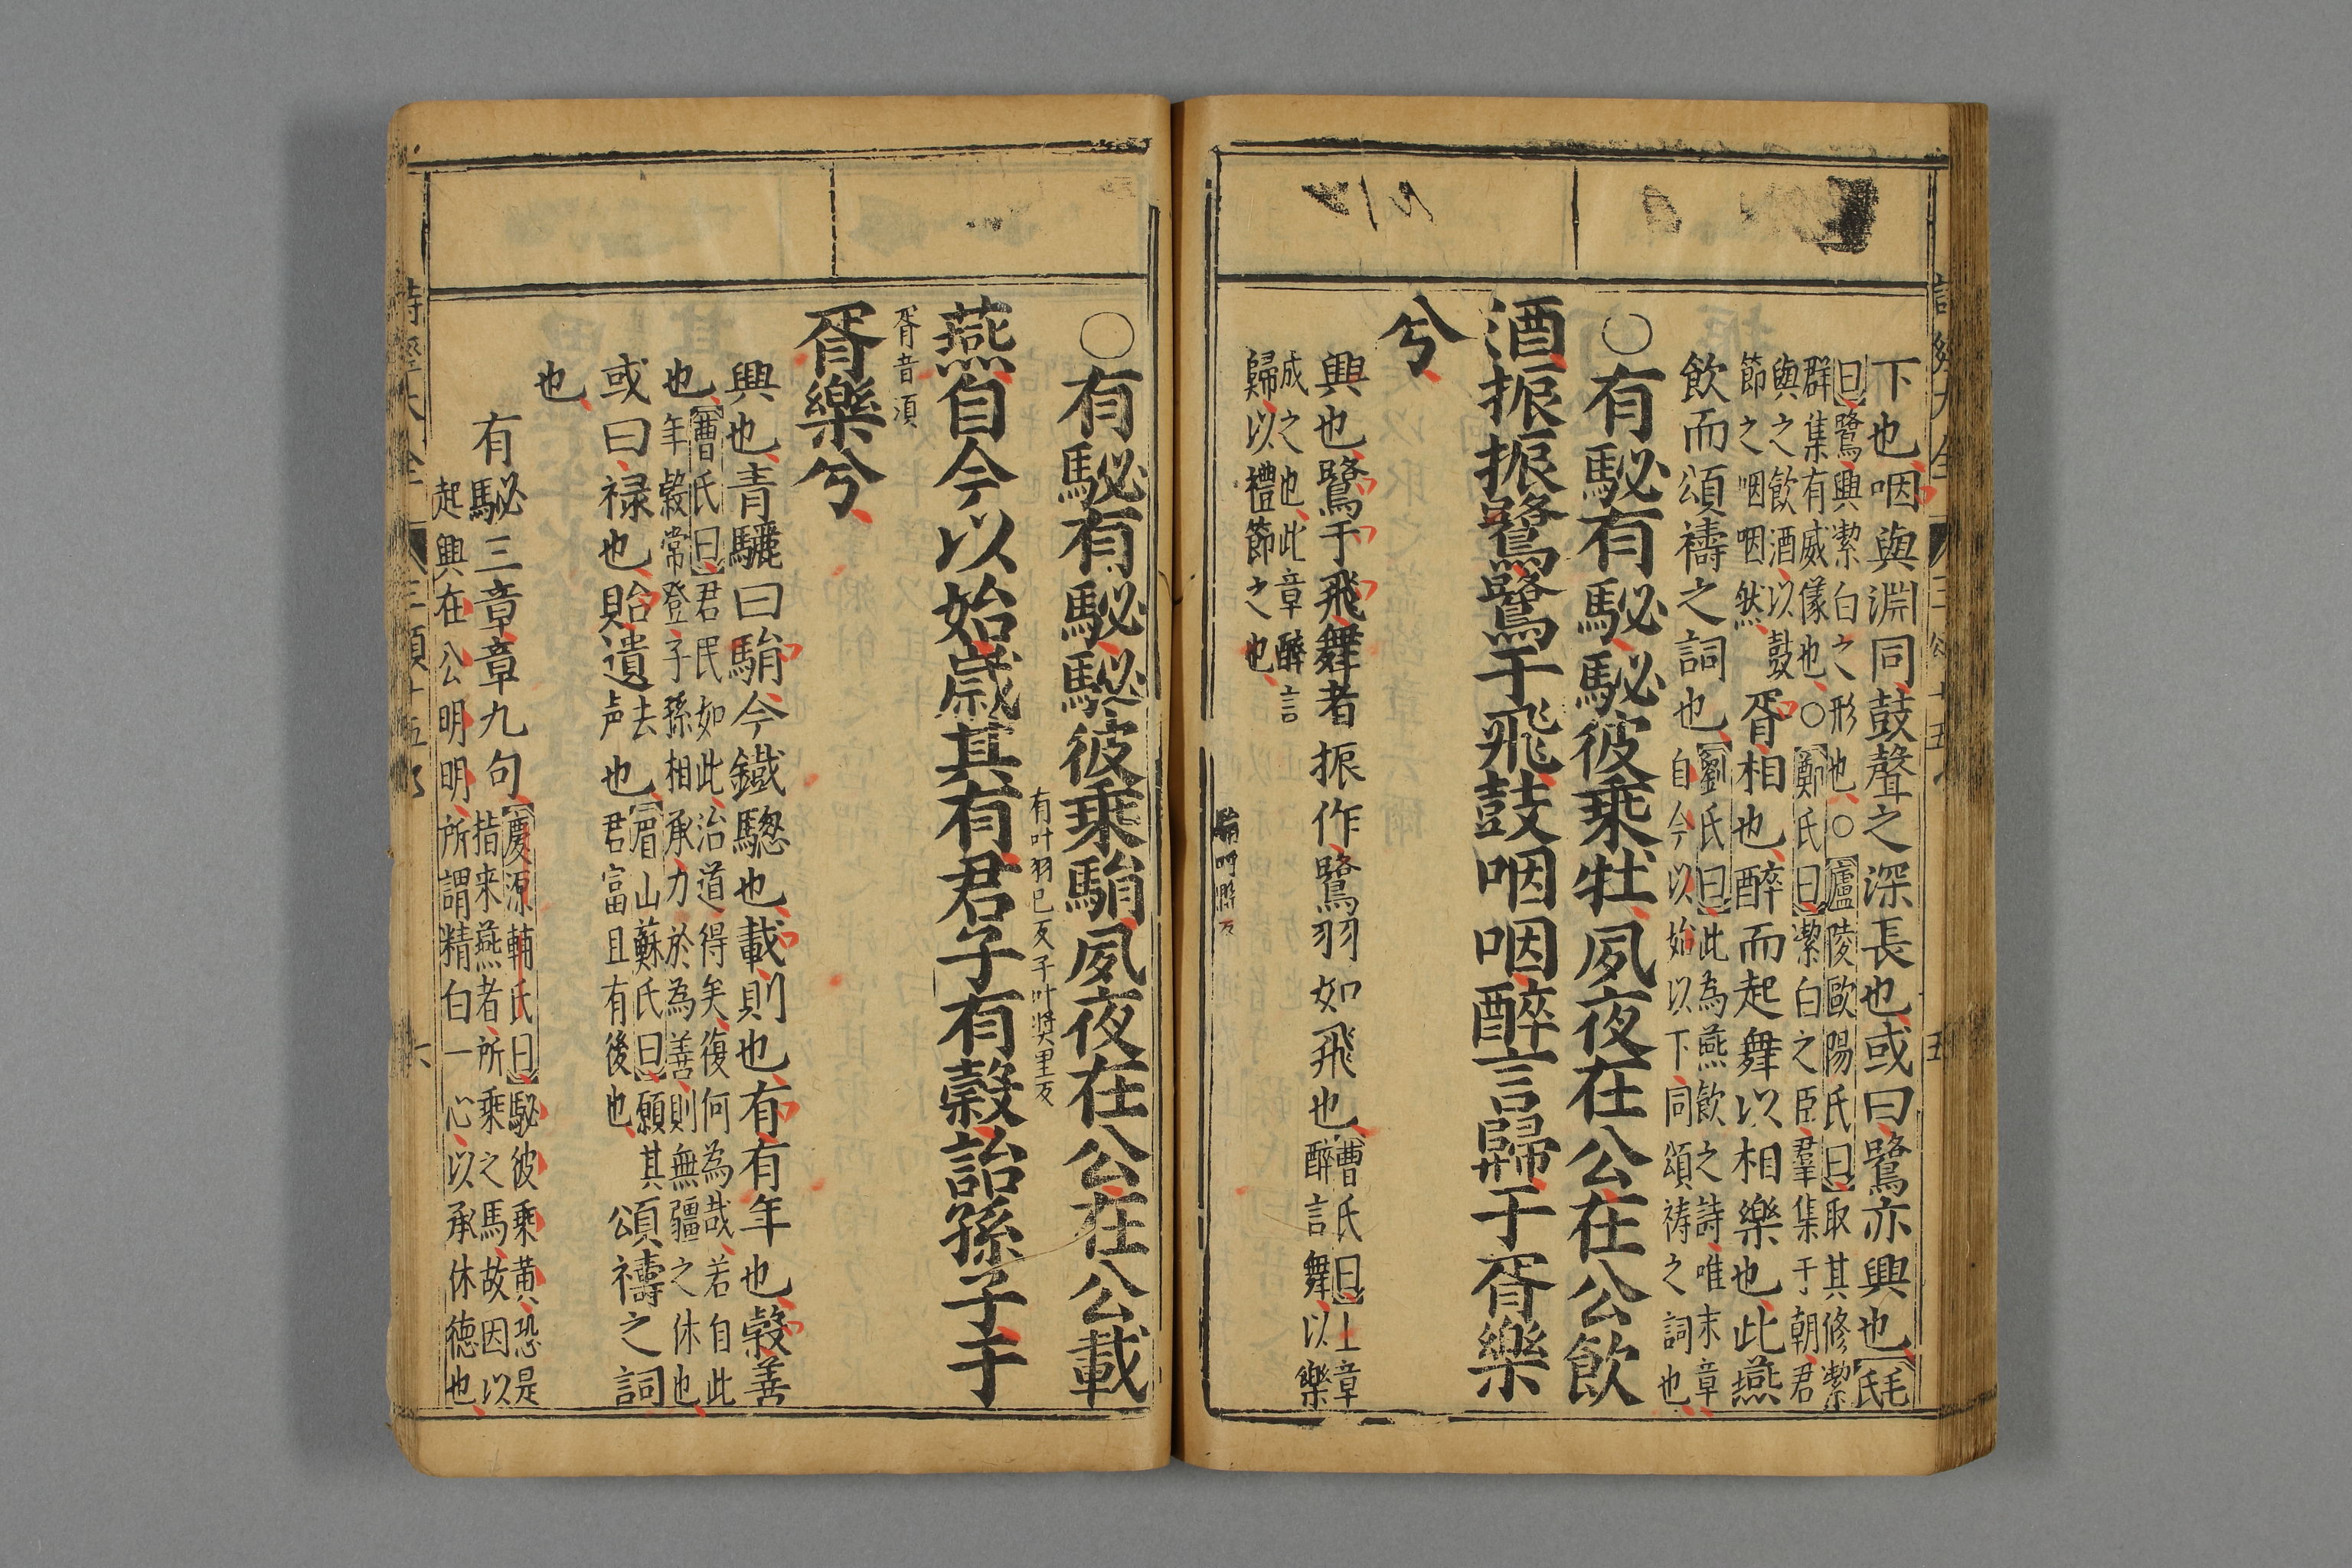 下也咽與淵同鼓聲之深長也或曰鷺亦興也毛氏
曰鷺興潔白之形也○廬陵歐陽氏曰取其修潔
群集有威儀也○鄭氏曰潔白之臣羣集于朝君
與之飲酒以鼓
節之咽咽然
胥相也醉而起舞以相樂也此燕
飲而頌禱之詞也
劉氏曰此為燕飲之詩唯末章
自今以始以下同頌祷之詞也
○有駜有駜駜彼乘牡夙夜在公在公飲
酒振振鷺鷺于飛鼓咽咽醉言歸于胥樂
兮
興也鷺于飛舞者振作鷺羽如飛也
曹氏曰上章
醉言舞以樂
成之也此章醉言
歸以禮節之也
○有駜有駜駜彼乘駽夙夜在公在公載
燕自今以始歲其有君子有穀詒孫子于
有叶羽已反子叶奬里反
胥樂兮
胥音須
興也青驪曰駽今鐵驄也載則也有有年也穀善
也
曹氏曰君民如此治道得矣復何為哉若自此
年穀常登子孫相承力於為善則無疆之休也
或曰祿也貽遺去声也
眉山蘇氏曰願其
君富且有後也
頌禱之詞
也
有駜三章章九句
慶源輔氏曰駜彼乘黄恐是
指来燕者所乘之馬故因以
起興在公明明所謂精白一心以承休德也